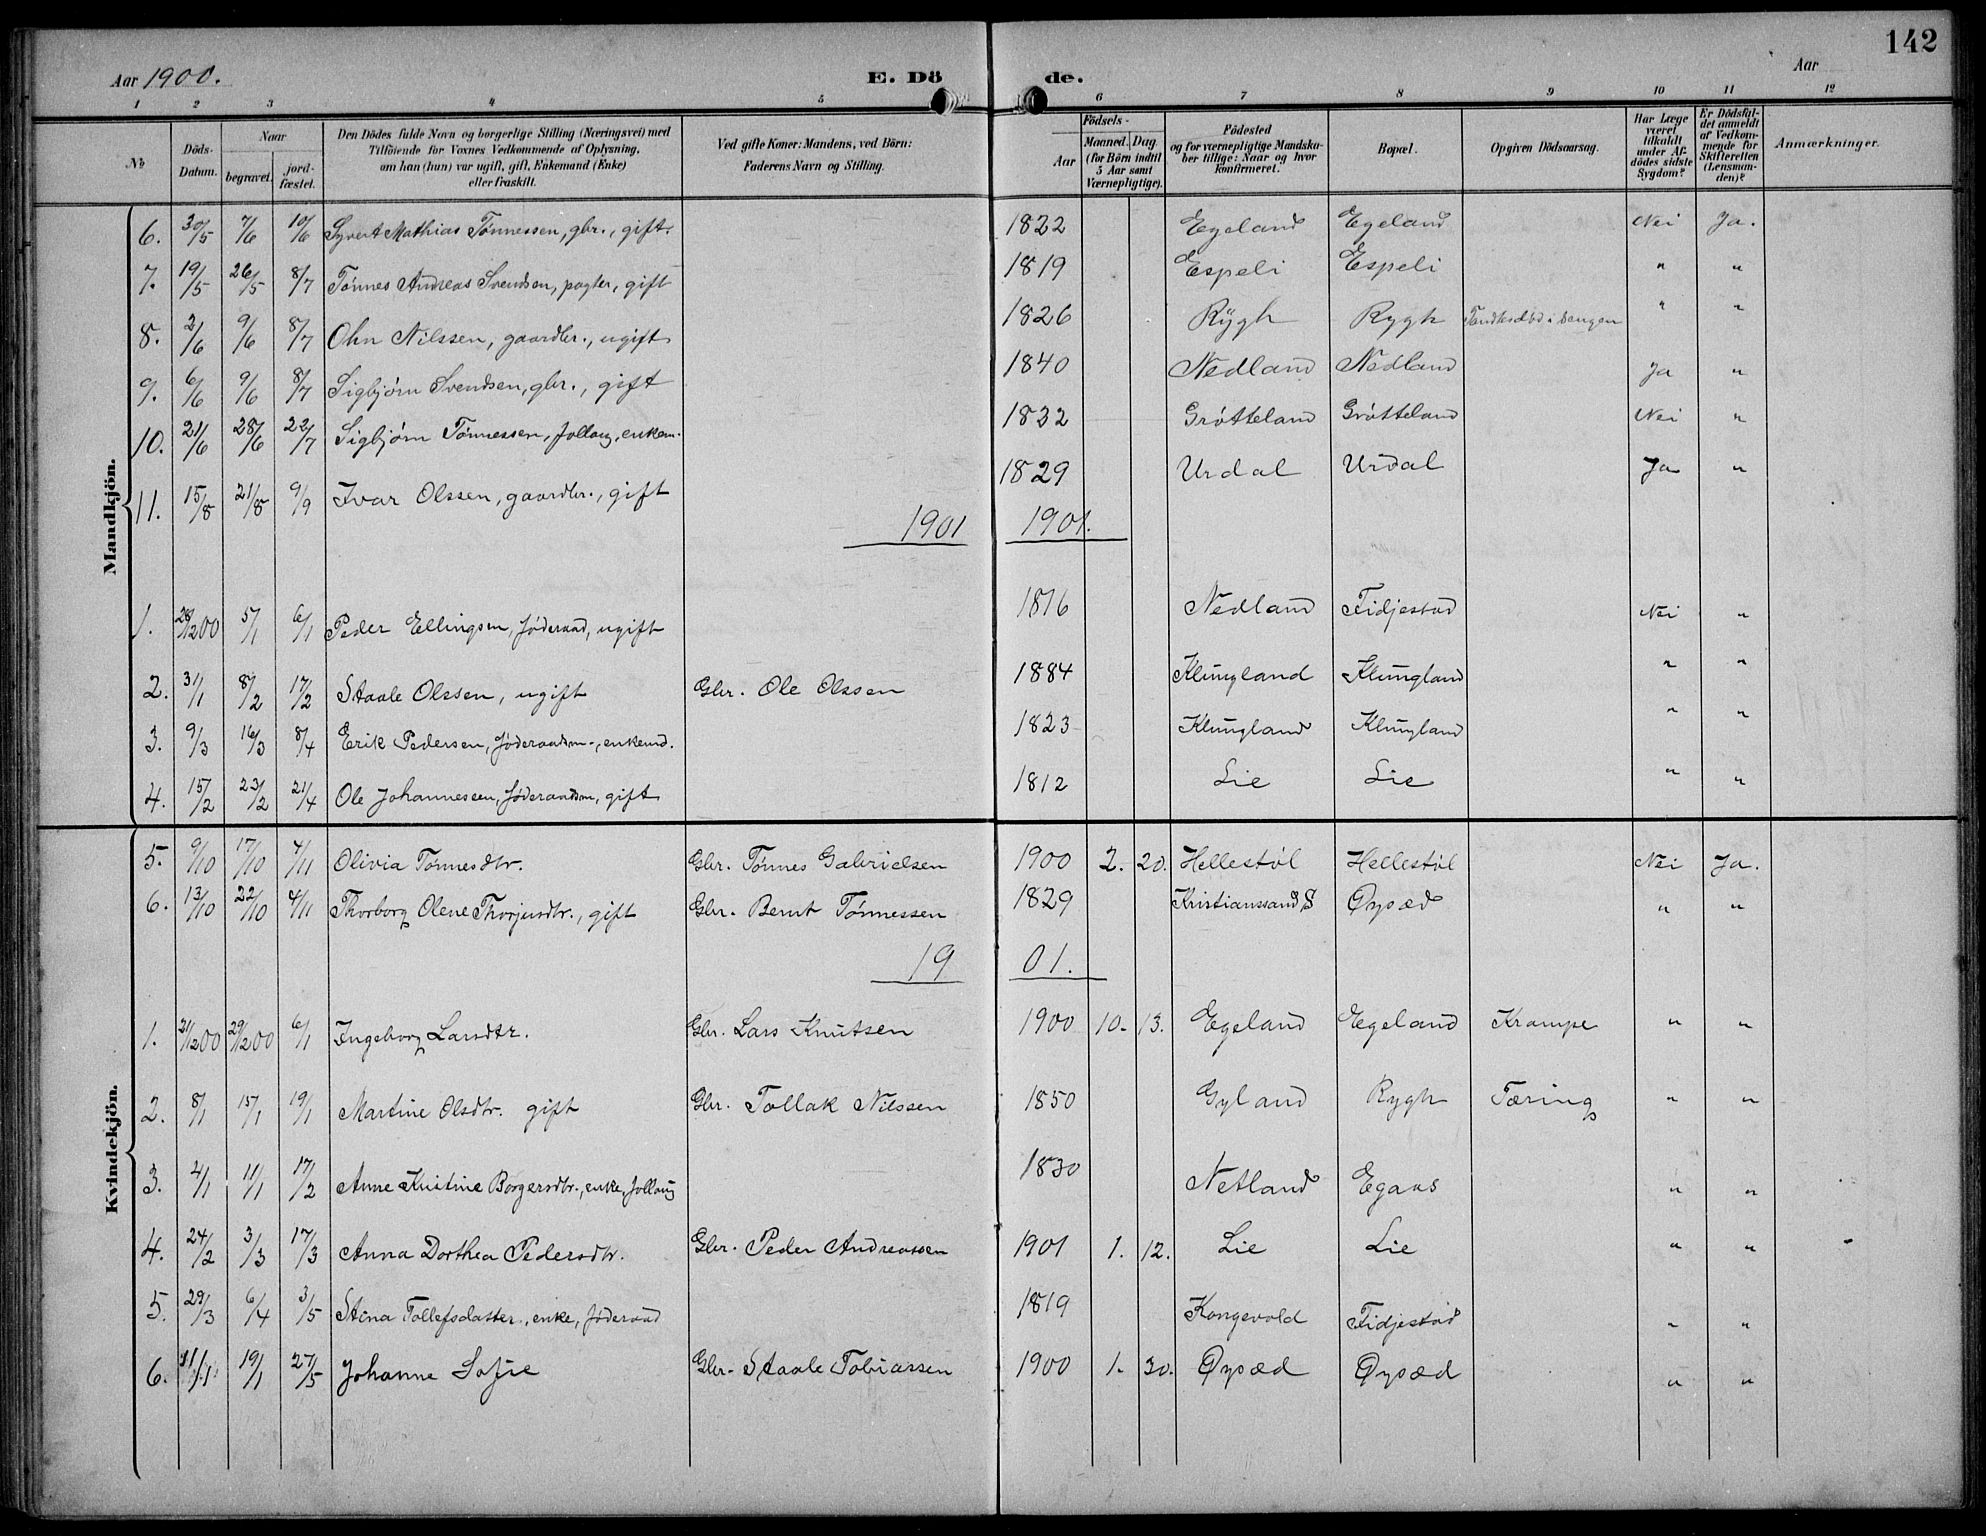 142
Aar 1900. E. Dö de. Aar
1 2 3 4 5 6 7 8 9 10 11 12
No
Döds-Datum.
Naar
begravet.
jordfæstet.
Den Dödes fulde Navn og borgerlige Stilling (Næringsvei) med
Tilföiende for Voxnes Vedkommende af Oplysning,
om han (hun) var ugift, gift, Enkemand (Enke)
eller fraskilt.
Ved gifte Koner: Mandens, ved Börn:
Faderens Navn og Stilling.
Födsels-
Aar
Maaned. Dag.
(for Börn indtil
5 Aar samt
Værnepligtige).
Födested
og for værnepligtige Mandska-
ber tillige: Naar og hvor
konfirmeret.
Bopæl.
Opgiven Dödsaarsag.
Har Læge
været
tilkaldt
under Af-
dödes sidste
Sygdom?
Er Dödsfal-
det anmeldt
af Vedkom-
mende for
Skifteretten
(Lensman-
den)?
Anmærkninger.
Mandkjön.
6. 30/5 7/6 10/6 Syvert Mathias Tønnessen, gbr., gift. 1822 Egeland Egeland Nei Ja.
7. 19/5 26/5 8/7 Tønnes Andreas Svendsen, pagter, gift 1819 Espeli Espeli " "
8. 2/6 9/6 8/7 Ohn Nilssen, gaardbr., ugift 1826 Rygh Rygh " "
9. 6/6 9/6 8/7 Sigbjørn Svendsen, gbr., gift 1840 Nedland Nedland Ja "
10. 21/6 28/6 22/7 Sigbjørn Tønnessen, Jollaug, enkem. 1832 Grøtteland Grøtteland Nei "
11. 15/8 21/8 9/9 Ivar Olssen, gaardbr., gift 1829 Urdal Urdal Ja "
1901 1901.
1. 28/12 00 5/1 6/1 Peder Ellingsen, føderaad, ugift 1816 Nedland Fidjestad Nei "
2. 31/1 8/2 17/2 Staale Olssen, ugift Gbr. Ole Olssen 1884 Klungland Klungland " "
3. 9/3 16/3 8/4 Erik Pedersen, føderaadsm., enkemd. 1823 Klungland Klungland " "
4. 15/2 23/2 21/4 Ole Johannessen, føderaadsm, gift 1812 Lie Lie " "
Kvindekjön.
5. 9/10 17/10 7/11 Olivia Tønnesdtr. Gbr. Tønnes Gabrielsen 1900 2. 20. Hellestøl Hellestøl Nei Ja.
6. 13/10 22/10 4/11 Thorborg Olene Thorjusdtr., gift Gbr. Bernt Tønnessen 1829 Kristianssand S Øysæd " "
19 01.
1. 21/12 00 29/12 00 6/1 Ingeborg Larsdtr. Gbr. Lars Knutsen 1900 10. 13. Egeland Egeland Krampe " "
2. 8/1 15/1 19/1 Martine Olsdtr. gift Gbr. Tollak Nilssen 1850 Gyland Rygh Tæring " "
3. 4/1 11/1 17/2 Anne Kristine Borgersdtr., enke, Jollaug 1830 Netland Egaas " "
4. 24/2 3/3 17/3 Anna Dorthea Pedersdtr. Gbr. Peder Andreassen 1901 1. 12. Lie Lie " "
5. 29/3 6/4 3/5 Stina Tollefsdatter, enke, føderaad 1819 Kongevold Fidjestad " "
6. 11/1 19/1 27/5 Johanne Sofie Gbr. Staale Tobiassen 1900 1. 30. Øysæd Øysæd " "